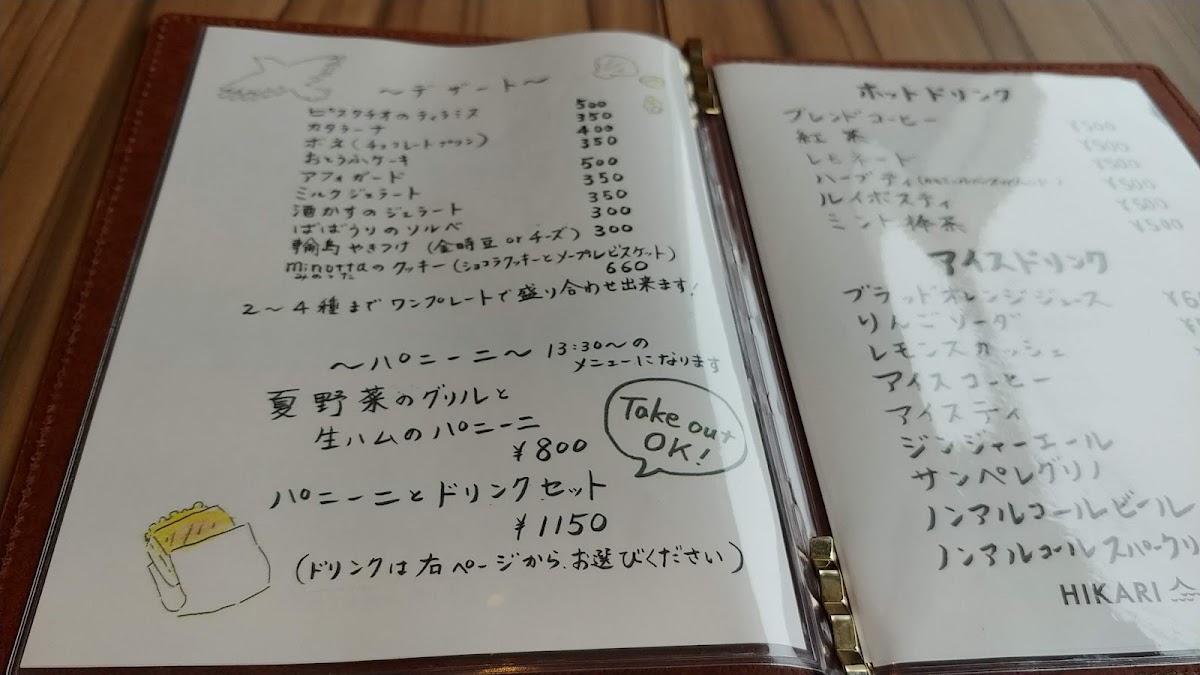 ～デザート～
ピスタチオのティラミス 500
カタラーナ 350
ボネ(チョコレートプリン) 400
おとうふケーキ 350
アフォガード 500
ミルクジェラート 350
酒かすのジェラート 350
ばばうりのソルベ 300
輪島やきつけ (金時豆 or チーズ) 300
minottaのクッキー(ショコラクッキーとメープルビスケット)
みのった 660
2～4種までワンプレートで盛り合わせ出来ます!
～パニーニ～ 13:30～の
メニューになります
夏野菜のグリルと
生ハムのパニーニ
¥800
Take out
OK!
パニーニとドリンクセット
¥1150
(ドリンクは右ページから、お選びください)
ホットドリンク
ブレンドコーヒー ¥500
紅茶 ¥500
レモネード ¥500
ハーブティ
ルイボスティ ¥500
ミント棒茶 ¥500
アイスドリンク
ブラッドオレンジジュース
りんごソーダ
レモンスカッシュ
アイスコーヒー
アイスティ
ジンジャーエール
サンペレグリノ
ノンアルコールビール
ノンアルコールスパークリ
HIKARI